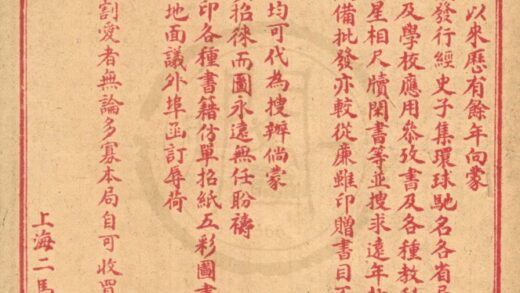 以來歷有餘年向蒙
發行經史子集環球馳名各省
及學校應用叅攷書及各種教
星相尺牘閑書等並搜求遠年
備批發亦較從廉雖印贈書目
均可代為搜辦倘蒙
招徠而圖永遠無任盼禱
印各種書籍仿單招紙五彩圖
地面議外埠函訂辱荷
割愛者無論多寡本局自可收買
上海二馬